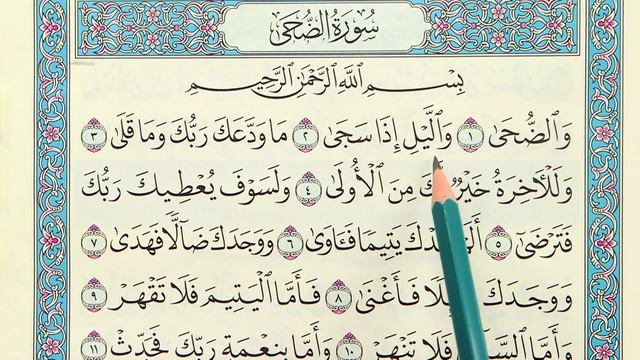 سُورَةُ الضُّحَىٰ
بِسْمِ ٱللَّهِ ٱلرَّحْمَٰنِ ٱلرَّحِيمِ
وَٱلضُّحَىٰ ١ وَٱلَّيْلِ إِذَا سَجَىٰ ٢ مَا وَدَّعَكَ رَبُّكَ وَمَا قَلَىٰ ٣
وَلَلْآخِرَةُ خَيْرٌ مِنَ ٱلْأُولَىٰ ٤ وَلَسَوْفَ يُعْطِيكَ رَبُّكَ
فَتَرْضَىٰٓ ٥ يَتِيمًا فَـَٔاوَىٰ ٦ وَوَجَدَكَ ضَآلًّا فَهَدَىٰ ٧
وَوَجَدَكَ فَأَغْنَىٰ ٨ فَأَمَّا ٱلْيَتِيمَ فَلَا تَقْهَرْ ٩
وَأَمَّا فَلَا تَنْهَرْ ١٠ وَأَمَّا بِنِعْمَةِ رَبِّكَ فَحَدِّثْ ١١